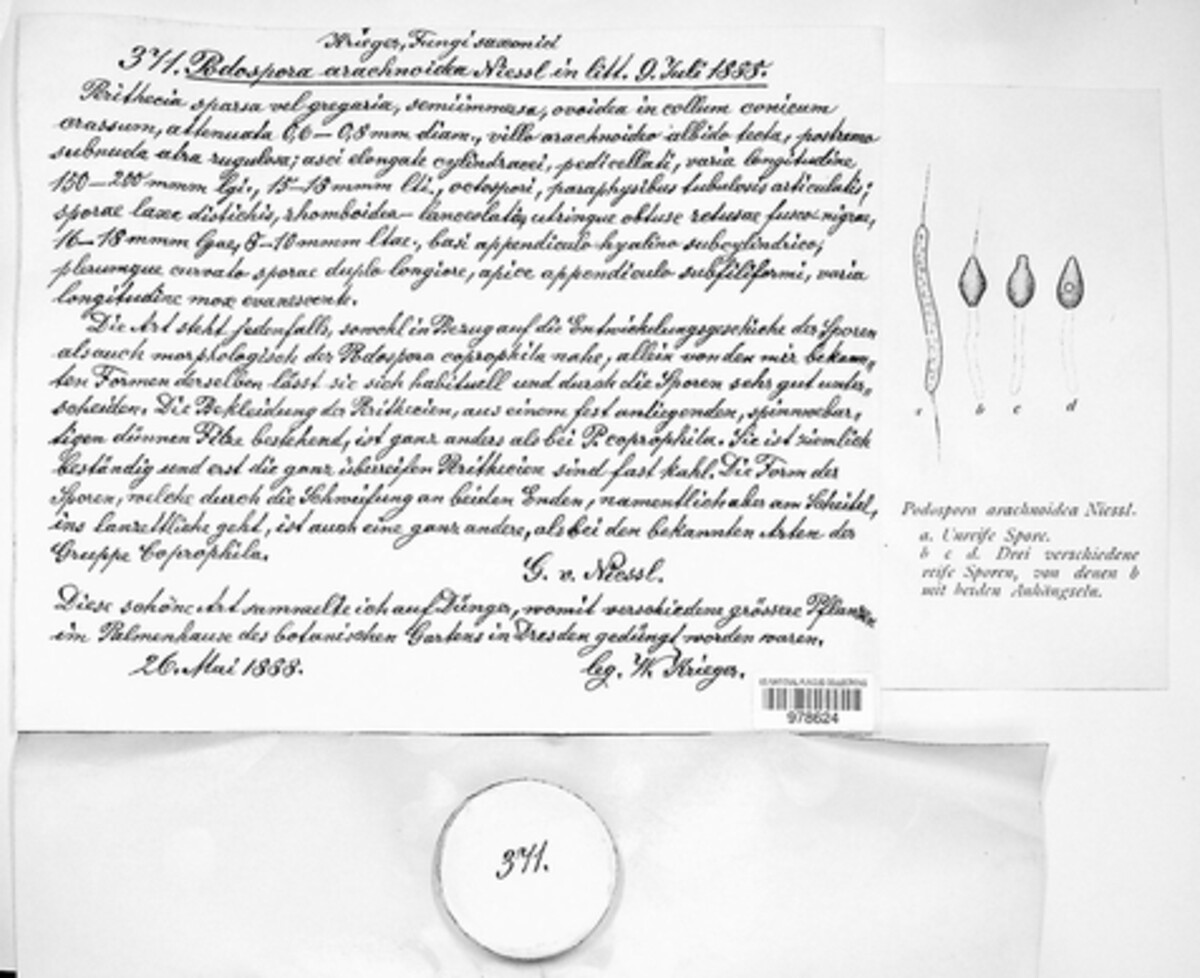 Krieger, Fungi saxonici
371. Podospora arachnoidea Niessl in litt. 9. Juli 1885.
Perithecia sparsa vel gregaria, semiimmersa, ovoidea in collum conicum
crassum, attenuata 0,6–0,8 mm diam., villo arachnoideo albido tecta, postremo
subnuda atra rugulosa; asci elongate cylindracei, pedicellati, varia longitudine
150–200 mmm lgi., 15–18 mmm lti., octospori, paraphysibus tubulosis articulatis;
sporae laxe distichis, rhomboidea–lanceolatis, utringue obtuse retusae fusco nigrae,
16–18 mmm lgae, 8–10 mmm ltae., basi appendiculo hyalino subcylindrico,
plerumque curvato sporae duplo longiore, apice appendiculo subfiliformi, varia
longitudine mox evanescente.
Die Art steht jedenfalls, sowohl in Bezug auf die Entwickelungsgeschichte der Sporen
als auch morphologisch der Podospora coprophila nahe; allein von den mir bekann-
ten Formen derselben lässt sie sich habituell und durch die Sporen sehr gut unter-
scheiden. Die Bekleidung der Perithecien, aus einem fest anliegenden, spinnwebar-
tigen dünnen Filze bestehend, ist ganz anders als bei P. coprophila. Sie ist ziemlich
beständig und erst die ganz überreifen Perithecien sind fast kahl. Die Form der
Sporen, welche durch die Schweifung an beiden Enden, namentlich aber am Scheitel,
ins lanzettliche geht, ist auch eine ganz andere, als bei den bekannten Arten der
Gruppe Coprophila.
G. v. Niessl.
Diese schöne Art sammelte ich auf Dünger, womit verschiedene grössere Pflanzen
im Palmenhause des botanischen Gartens in Dresden gedüngt worden waren.
26. Mai 1888. leg. W. Krieger.
US NATIONAL FUNGUS COLLECTIONS
978624
a b c d
Podospora arachnoidea Niessl.
a. Unreife Spore.
b c d. Drei verschiedene
reife Sporen, von denen b
mit beiden Anhängseln.
371.